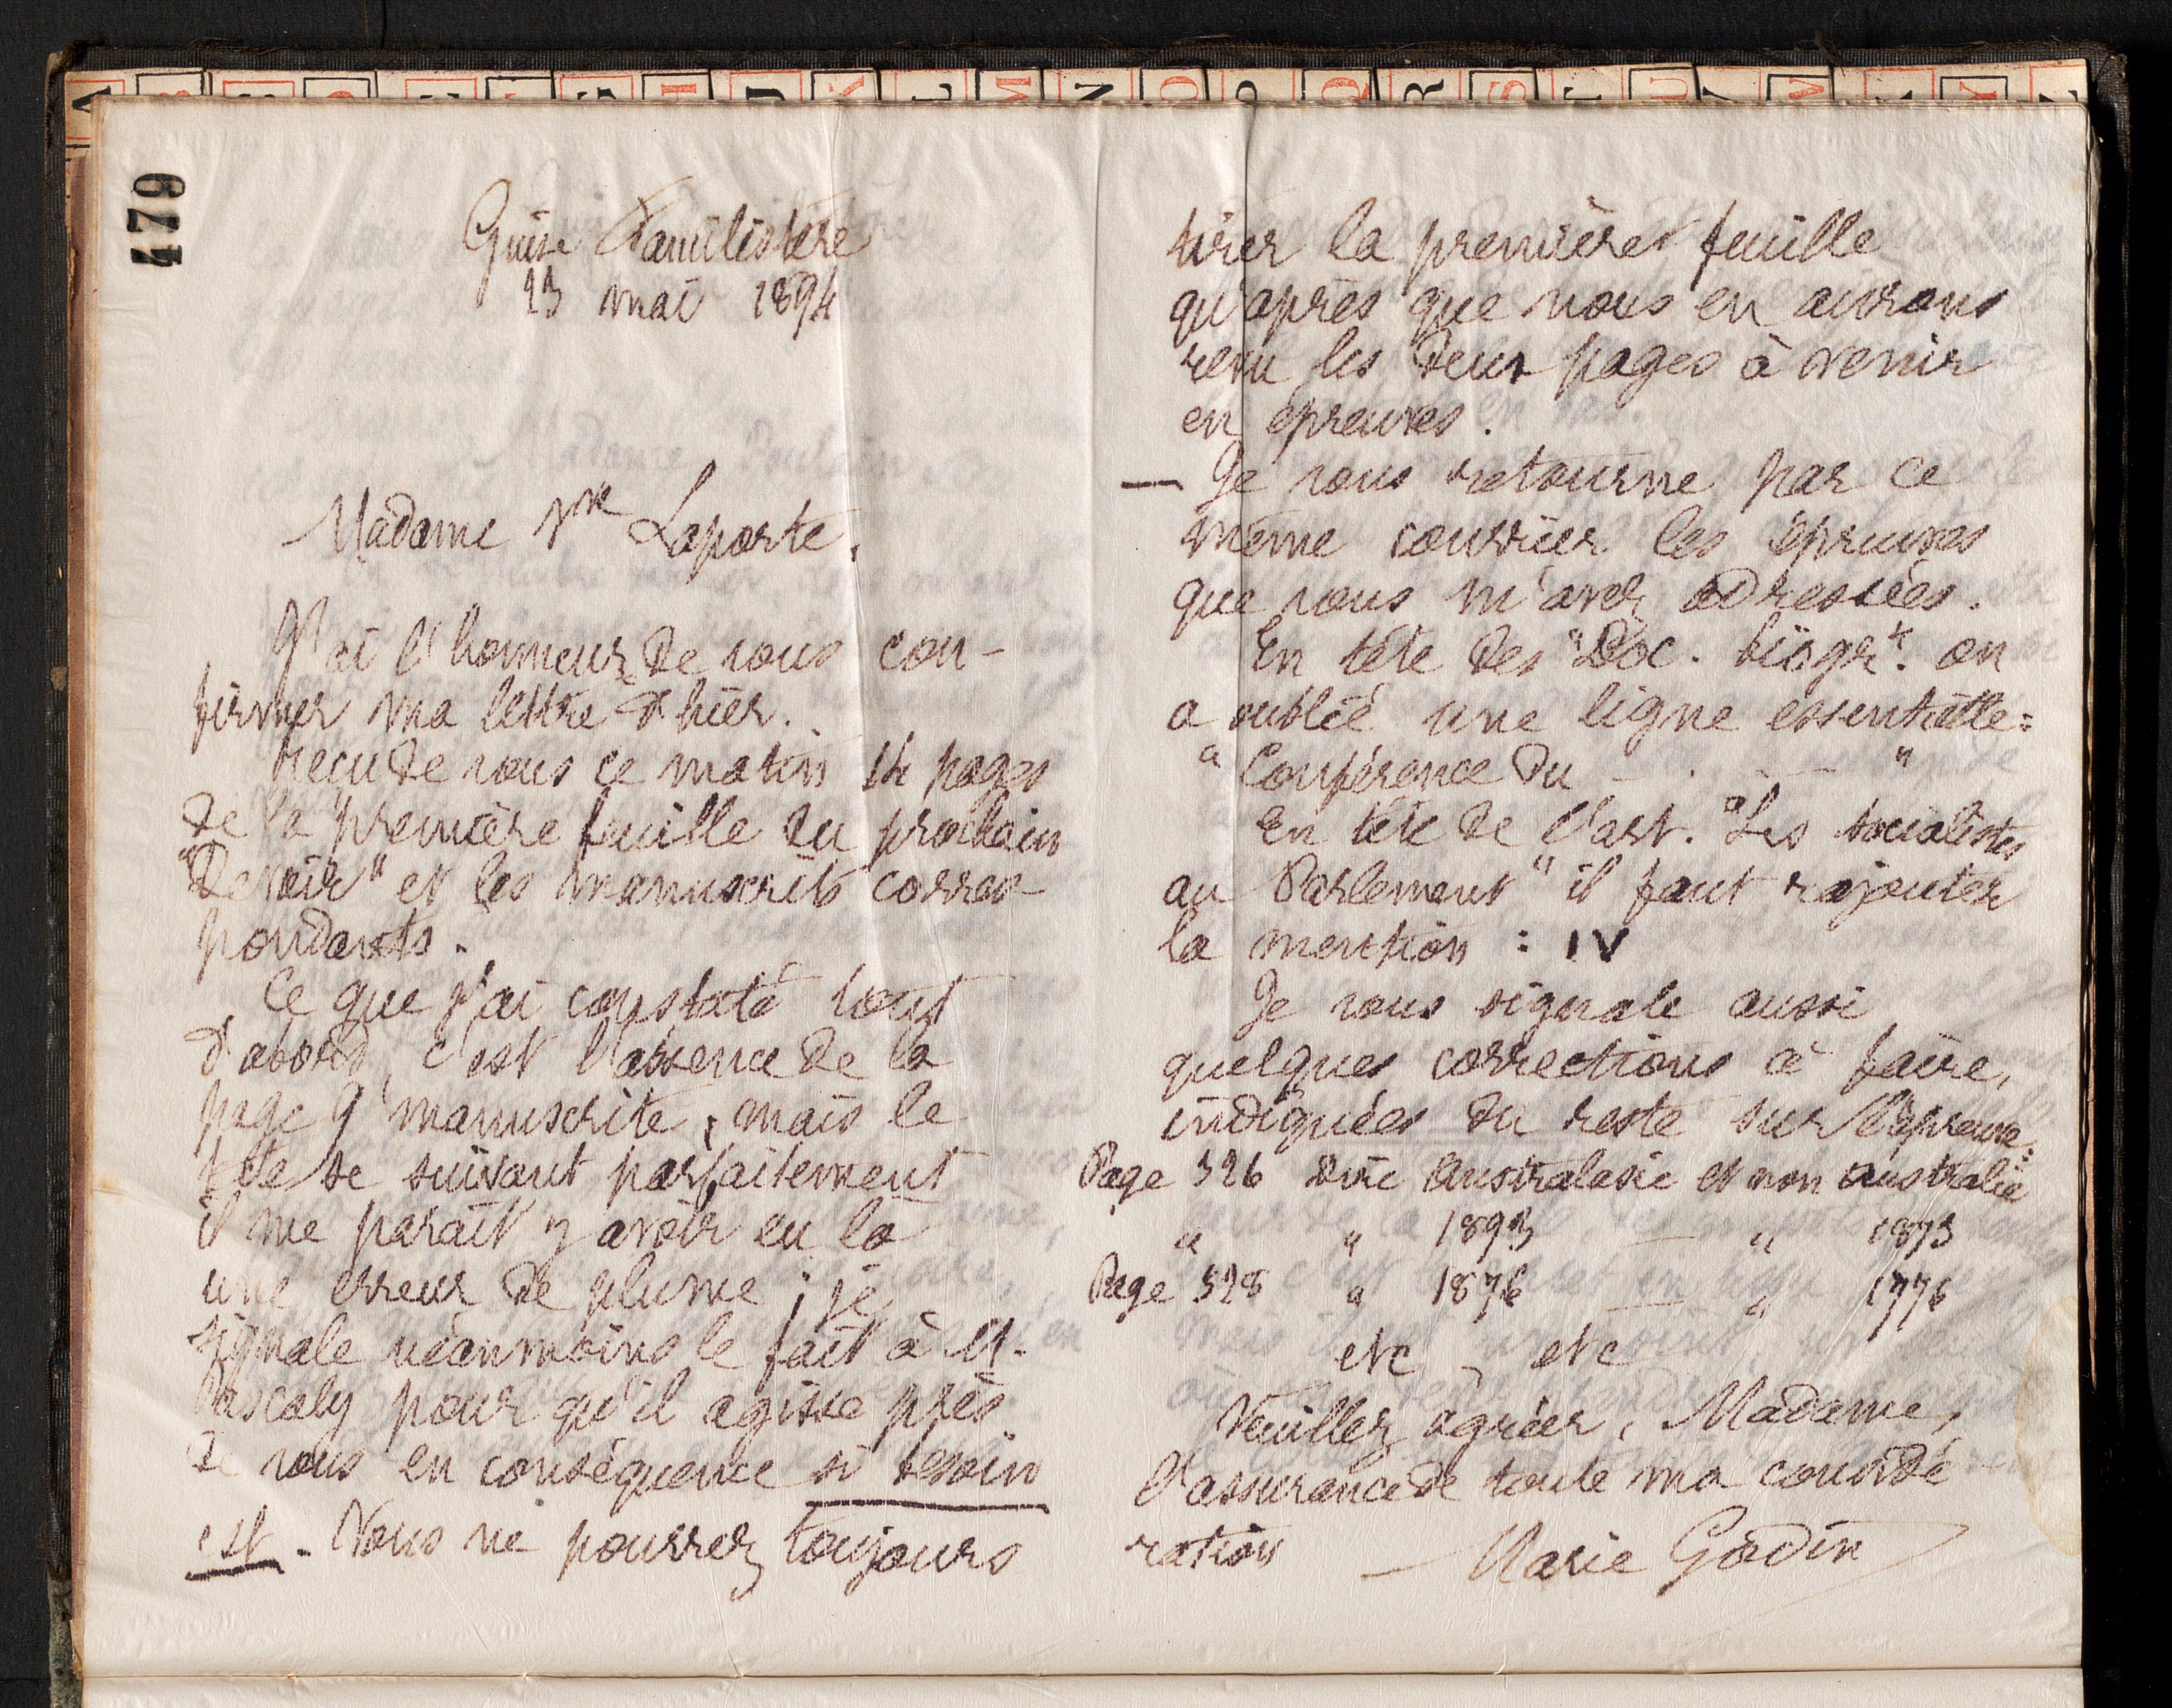 479
Guise Familistère
23 mai 1894
Madame Vve Laporte,
J'ai l'honneur de vous con-
firmer ma lettre d'hier.
Reçu de vous ce matin 14 pages
de la première feuille du prochain
"Devoir" et les manuscrits corres-
pondants.
Ce que j'ai constaté tout
d'abord, c'est l'absence de la
page 9 manuscrite, mais le
texte se suivant parfaitement
il me paraît y avoir eu là
une erreur de plume ; je
signale néanmoins le fait à M.
Pascaly pour qu'il agisse près
de vous en conséquence si besoin
est. Vous ne pourrez toujours
tirer la première feuille
qu'après que nous en aurons
revu les deux pages à venir
en épreuves.
— Je vous retourne par ce
même courrier les épreuves
que vous m'avez adressées.
En tête des "Doc. biogr." on
a oublié une ligne essentielle :
"Conférence du - . - — "
En tête de l'art. "Les socialistes
au Parlement" il faut rajouter
la mention : IV
Je vous signale aussi
quelques corrections à faire,
indiquées du reste sur l'épreuve :
Page 326 Dire Australasie et non Australie
" " 1893 — " 1873
Page 328 " 1876 — " 1776
etc, etc
Veuillez agréer, Madame,
l'assurance de toute ma considé
ration — Marie Godin